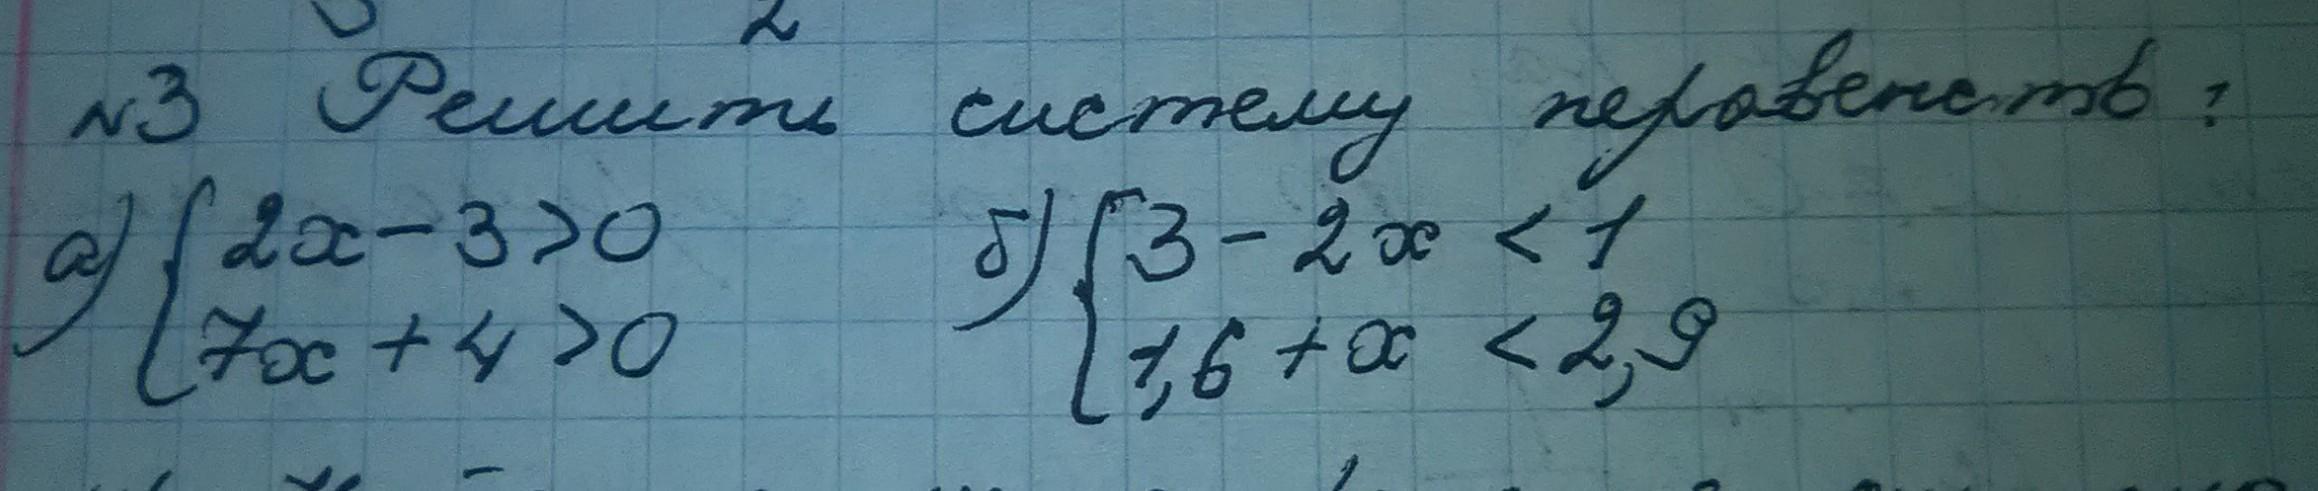 2
№3 Решить систему неравенств:
а) { 2x - 3 > 0
7x + 4 > 0
б) { 3 - 2x < 1
1,6 + x < 2,9